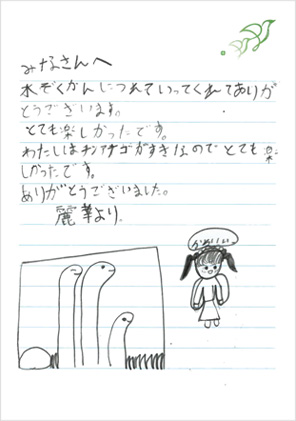 みなさんへ
水ぞくかんにつれていってくれてありが
とうございます。
とても楽しかったです。
わたしはチンアナゴがすきなのでとても楽
しかったです。
ありがとうございました。
麗華より